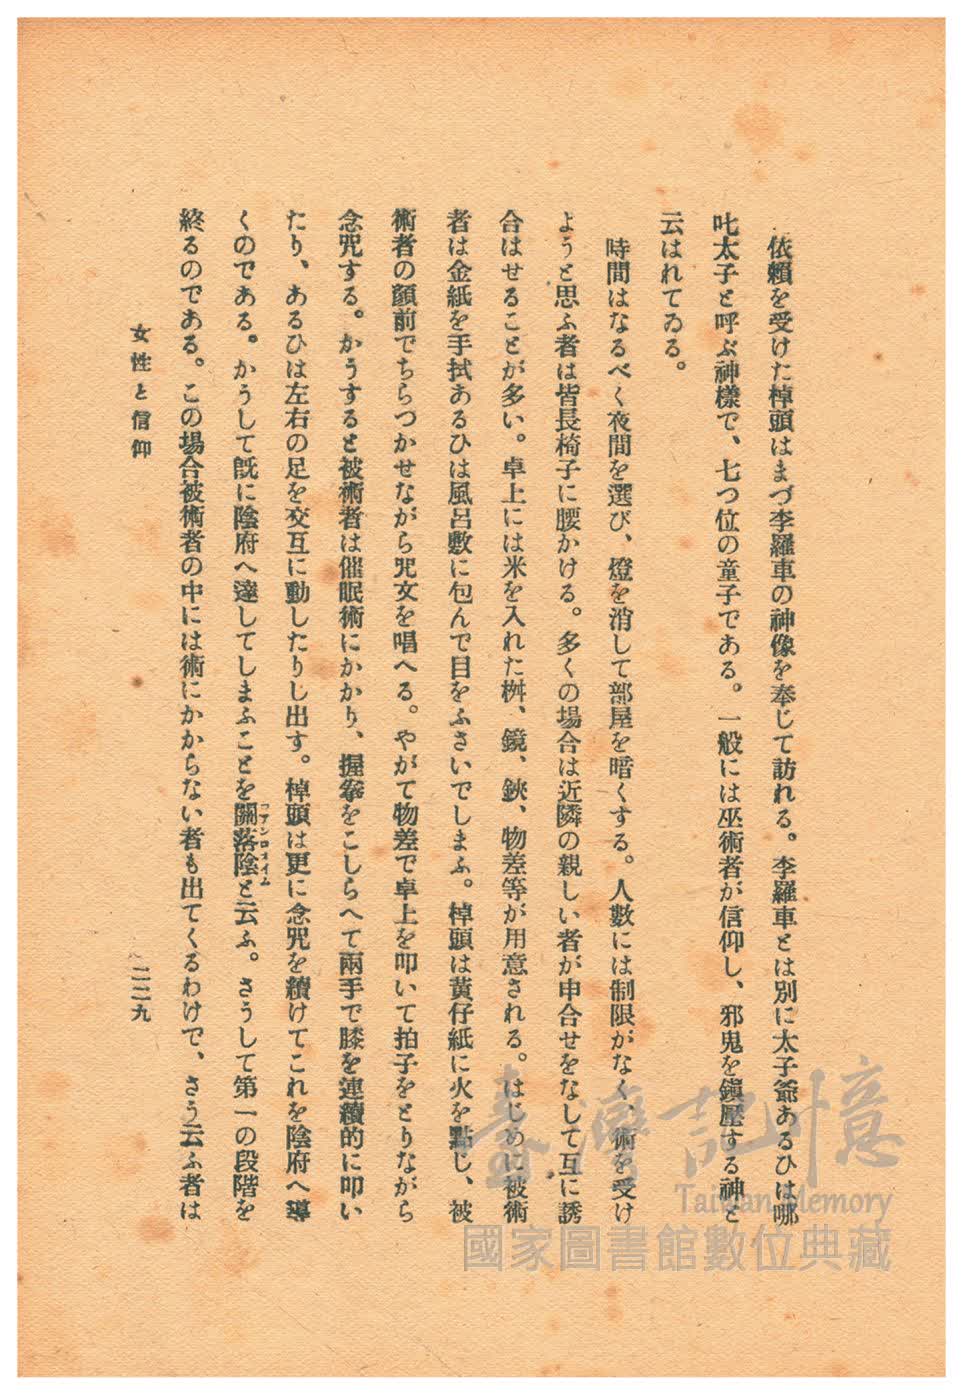 依賴を受けた棹頭はまづ李羅車の神像を奉じて訪れる。李羅車とは別に太子爺あるひは哪
叱太子と呼ぶ神樣で、七つ位の童子である。一般には巫術者が信仰し、邪鬼を鎭壓する神と
云はれてゐる。
時間はなるべく夜間を選び、燈を消して部屋を暗くする。人數には制限がなく、術を受け
ようと思ふ者は皆長椅子に腰かける。多くの場合は近隣の親しい者が申合せをなして互に誘
合はせることが多い。卓上には米を入れた桝、鏡、鋏、物差等が用意される。はじめに被術
者は金紙を手拭あるひは風呂敷に包んで目をふさいでしまふ。棹頭は黃仔紙に火を點じ、被
術者の顏前でちらつかせながら咒文を唱へる。やがて物差で卓上を叩いて拍子をとりながら
念咒する。かうすると被術者は催眠術にかかり、握拳をこしらへて兩手で膝を連續的に叩い
たり、あるひは左右の足を交互に動したりし出す。棹頭は更に念咒を續けてこれを陰府へ導
くのである。かうして既に陰府へ達してしまふことを關落陰と云ふ。さうして第一の段階を
コアンロオイム
終るのである。この場合被術者の中には術にかからない者も出てくるわけで、さう云ふ者は
女性と信仰
二二九
臺灣記憶
Taiwan Memory
國家圖書館數位典藏